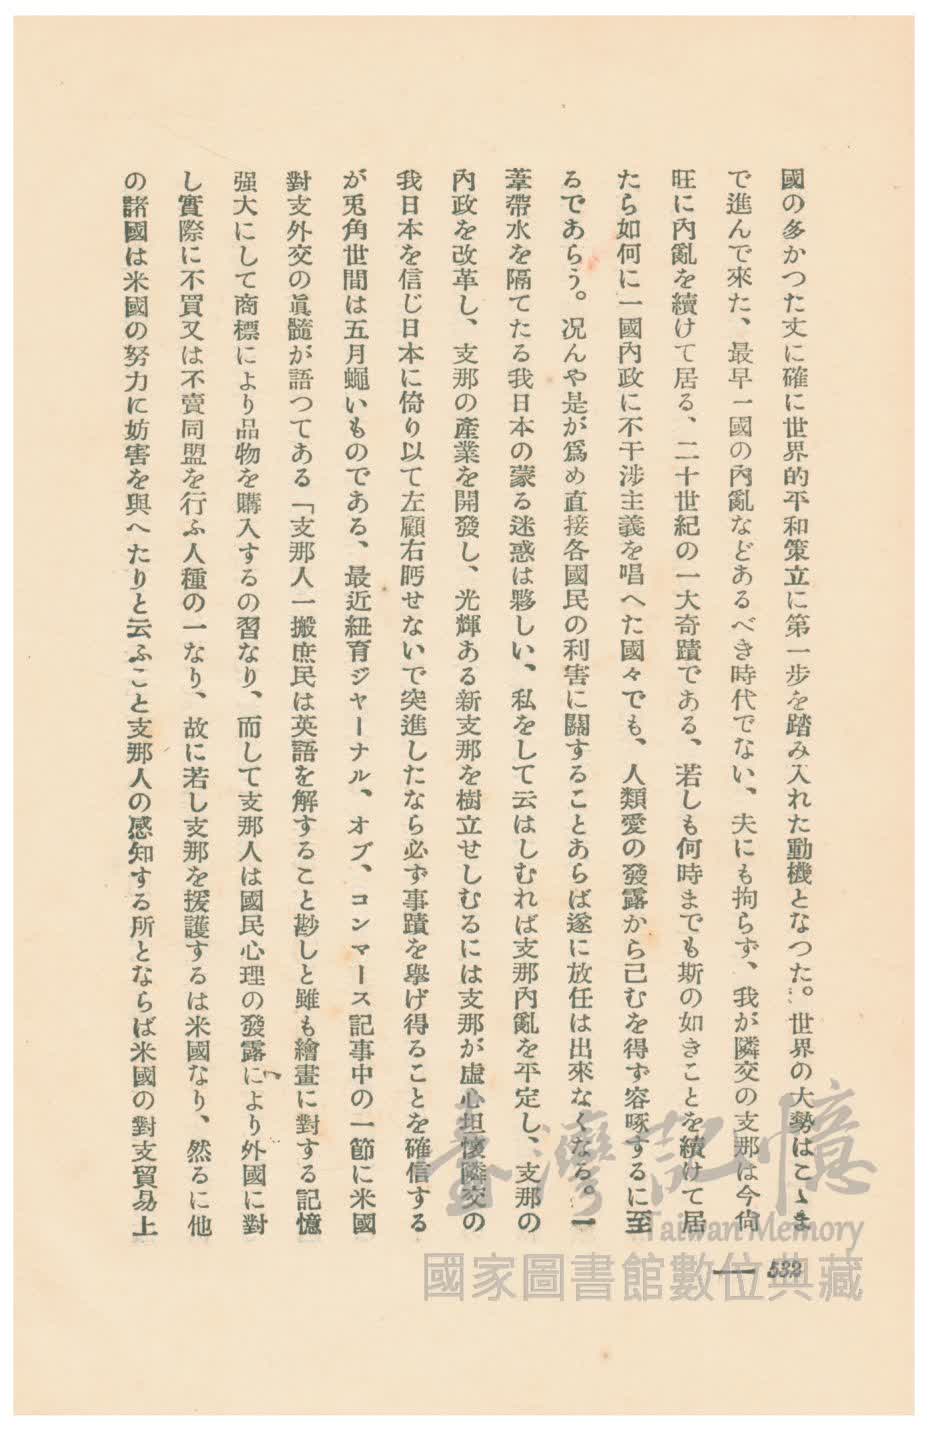 國の多かつた丈に確に世界的平和策立に第一步を踏み入れた動機となつた。世界の大勢はこゝま
で進んで來た、最早一國の內亂などあるべき時代でない、夫にも拘らず、我が隣交の支那は今尙
旺に內亂を續けて居る、二十世紀の一大奇蹟である、若しも何時までも斯の如きことを續けて居
たら如何に一國內政に不干涉主義を唱へた國々でも、人類愛の發露から已むを得ず容啄するに至
るであらう。况んや是が爲め直接各國民の利害に關することあらば遂に放任は出來なくなる。一
葦帶水を隔てたる我日本の蒙る迷惑は夥しい、私をして云はしむれば支那內亂を平定し、支那の
內政を改革し、支那の產業を開發し、光輝ある新支那を樹立せしむるには支那が虛心坦懷隣交の
我日本を信じ日本に倚り以て左顧右眄せないで突進したなら必ず事蹟を擧げ得ることを確信する
が兎角世間は五月蠅いものである、最近紐育ジヤーナル、オブ、コンマース記事中の一節に米國
對支外交の眞髓が語つてある「支那人一搬庶民は英語を解すること尠しと雖も繪畫に對する記憶
强大にして商標により品物を購入するの習なり、而して支那人は國民心理の發露により外國に對
し實際に不買又は不賣同盟を行ふ人種の一なり、故に若し支那を援護するは米國なり、然るに他
の諸國は米國の努力に妨害を與へたりと云ふこと支那人の感知する所とならば米國の對支貿易上
532
臺灣記憶
Taiwan Memory
國家圖書館數位典藏